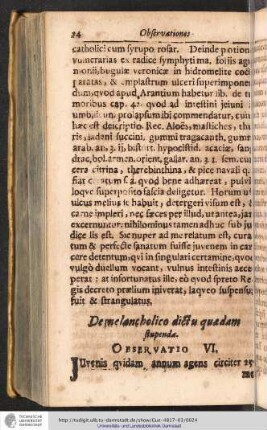 34 Observationes
catholici cum syrupo rosar. Deinde potion
vulnerarias ex radice symphyti ma. foliis agri
monii, bugulæ veronicæ in hidromelite coct
paratas, & emplastrum ulceri superimponen
dum, quod apud Arantium habetur lib. de tu
moribus cap. 42 quod ad intestini jejuni
umbilicum pro lapsum ibi commendatur, cuius
hæc est descriptio. Rec. Aloës, mastiches, thu
ris, sadani succini, gummi tragacanth. gumi
arab. an. bistort. hypocistid. acatiæ, san
drac. bol. armen. orient. gallar. an. sem. cum
cera citrina, therebinthina, & pice navali q.
fiat quod bene adhæreat, pulvi
loque superposito fascia deligetur. Horum u
ulcus melius se habuit, detergeri visum est, &
carne impleri, nec fæces per illud, ut antea, jam
excernuntur: nihilominus tamen adhuc sub ju
dice lis est. Sic nuper ad me relatum est, cura
tum & perfectè sanatum fuisse juvenem in car
cere detentum, qui in singulari certamine, quod
vulgò duellum vocant, vulnus intestinis acce
perat: at infortunatus ille, eò quod spreto Re
gis decreto prælium iniverat, laqueo suspensus
fuit & strangulatus.
De melancholico dictu quadam
stupenda.
OBSERVATIO VI.
JUvenis quidam, annum agens circiter
http://tudigit.ulb.tu-darmstadt.de/show/Gue-4817-03/0024
Universitäts- und Landesbibliothek Darmstadt